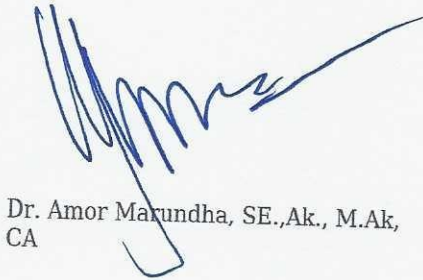 Dr. Amor Marundha, SE.,Ak., M.Ak,
CA